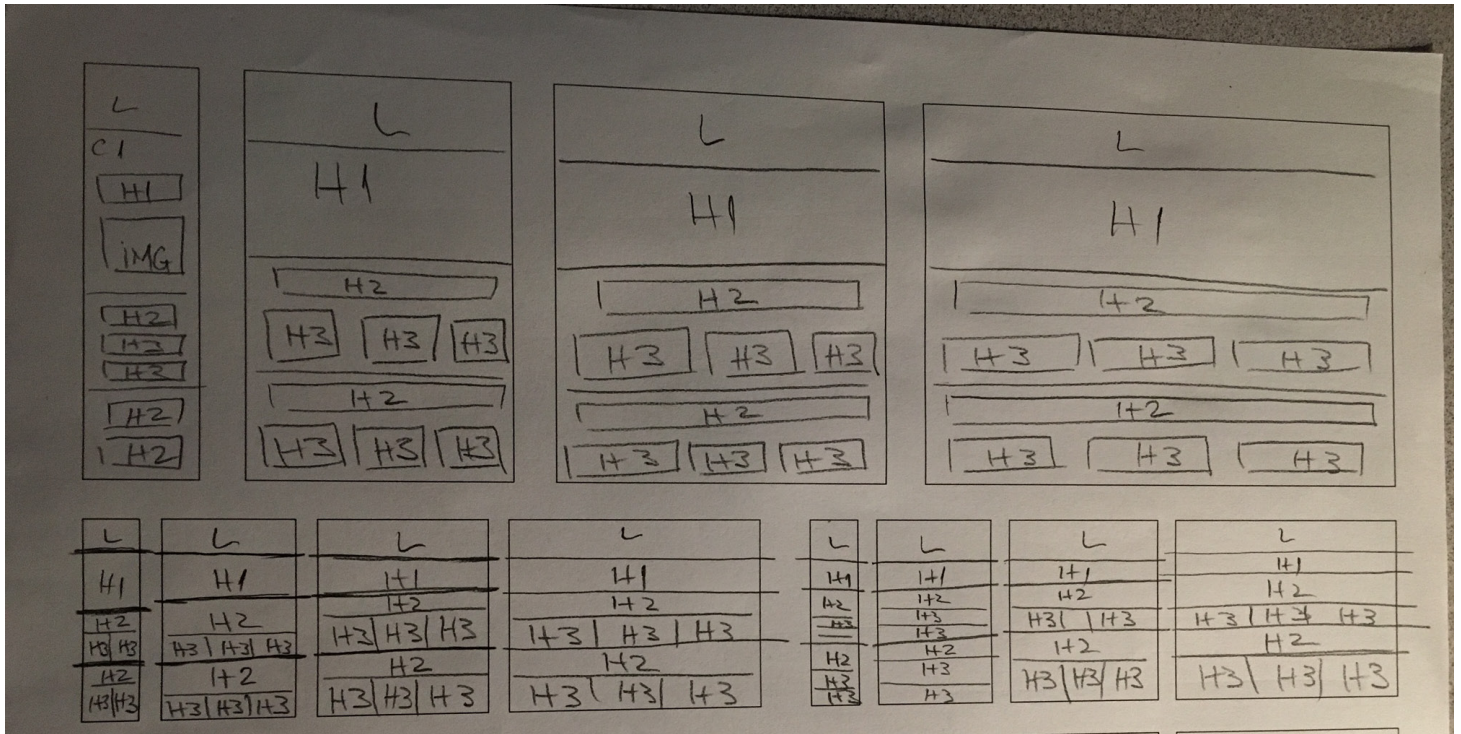 L
C1
H1
IMG
H2
H3
H3
H2
H2
L
H1
H2
H3 H3 H3
H2
H3 H3 H3
L
H1
H2
H3 H3 H3
H2
H3 H3 H3
L
H1
H2
H3 H3 H3
H2
H3 H3 H3
L
H1
H2
H3 H3
H2
H3 H3
L
H1
H2
H3 H3 H3
H2
H3 H3 H3
L
H1
H2
H3 H3 H3
H2
H3 H3 H3
L
H1
H2
H3 H3 H3
H2
H3 H3 H3
L
H1
H2
H3
H2
H3
H3
L
H1
H2
H3
H3
H2
H3
H3
L
H1
H2
H3 H3
H2
H3 H3 H3
L
H1
H2
H3 H3 H3
H2
H3 H3 H3